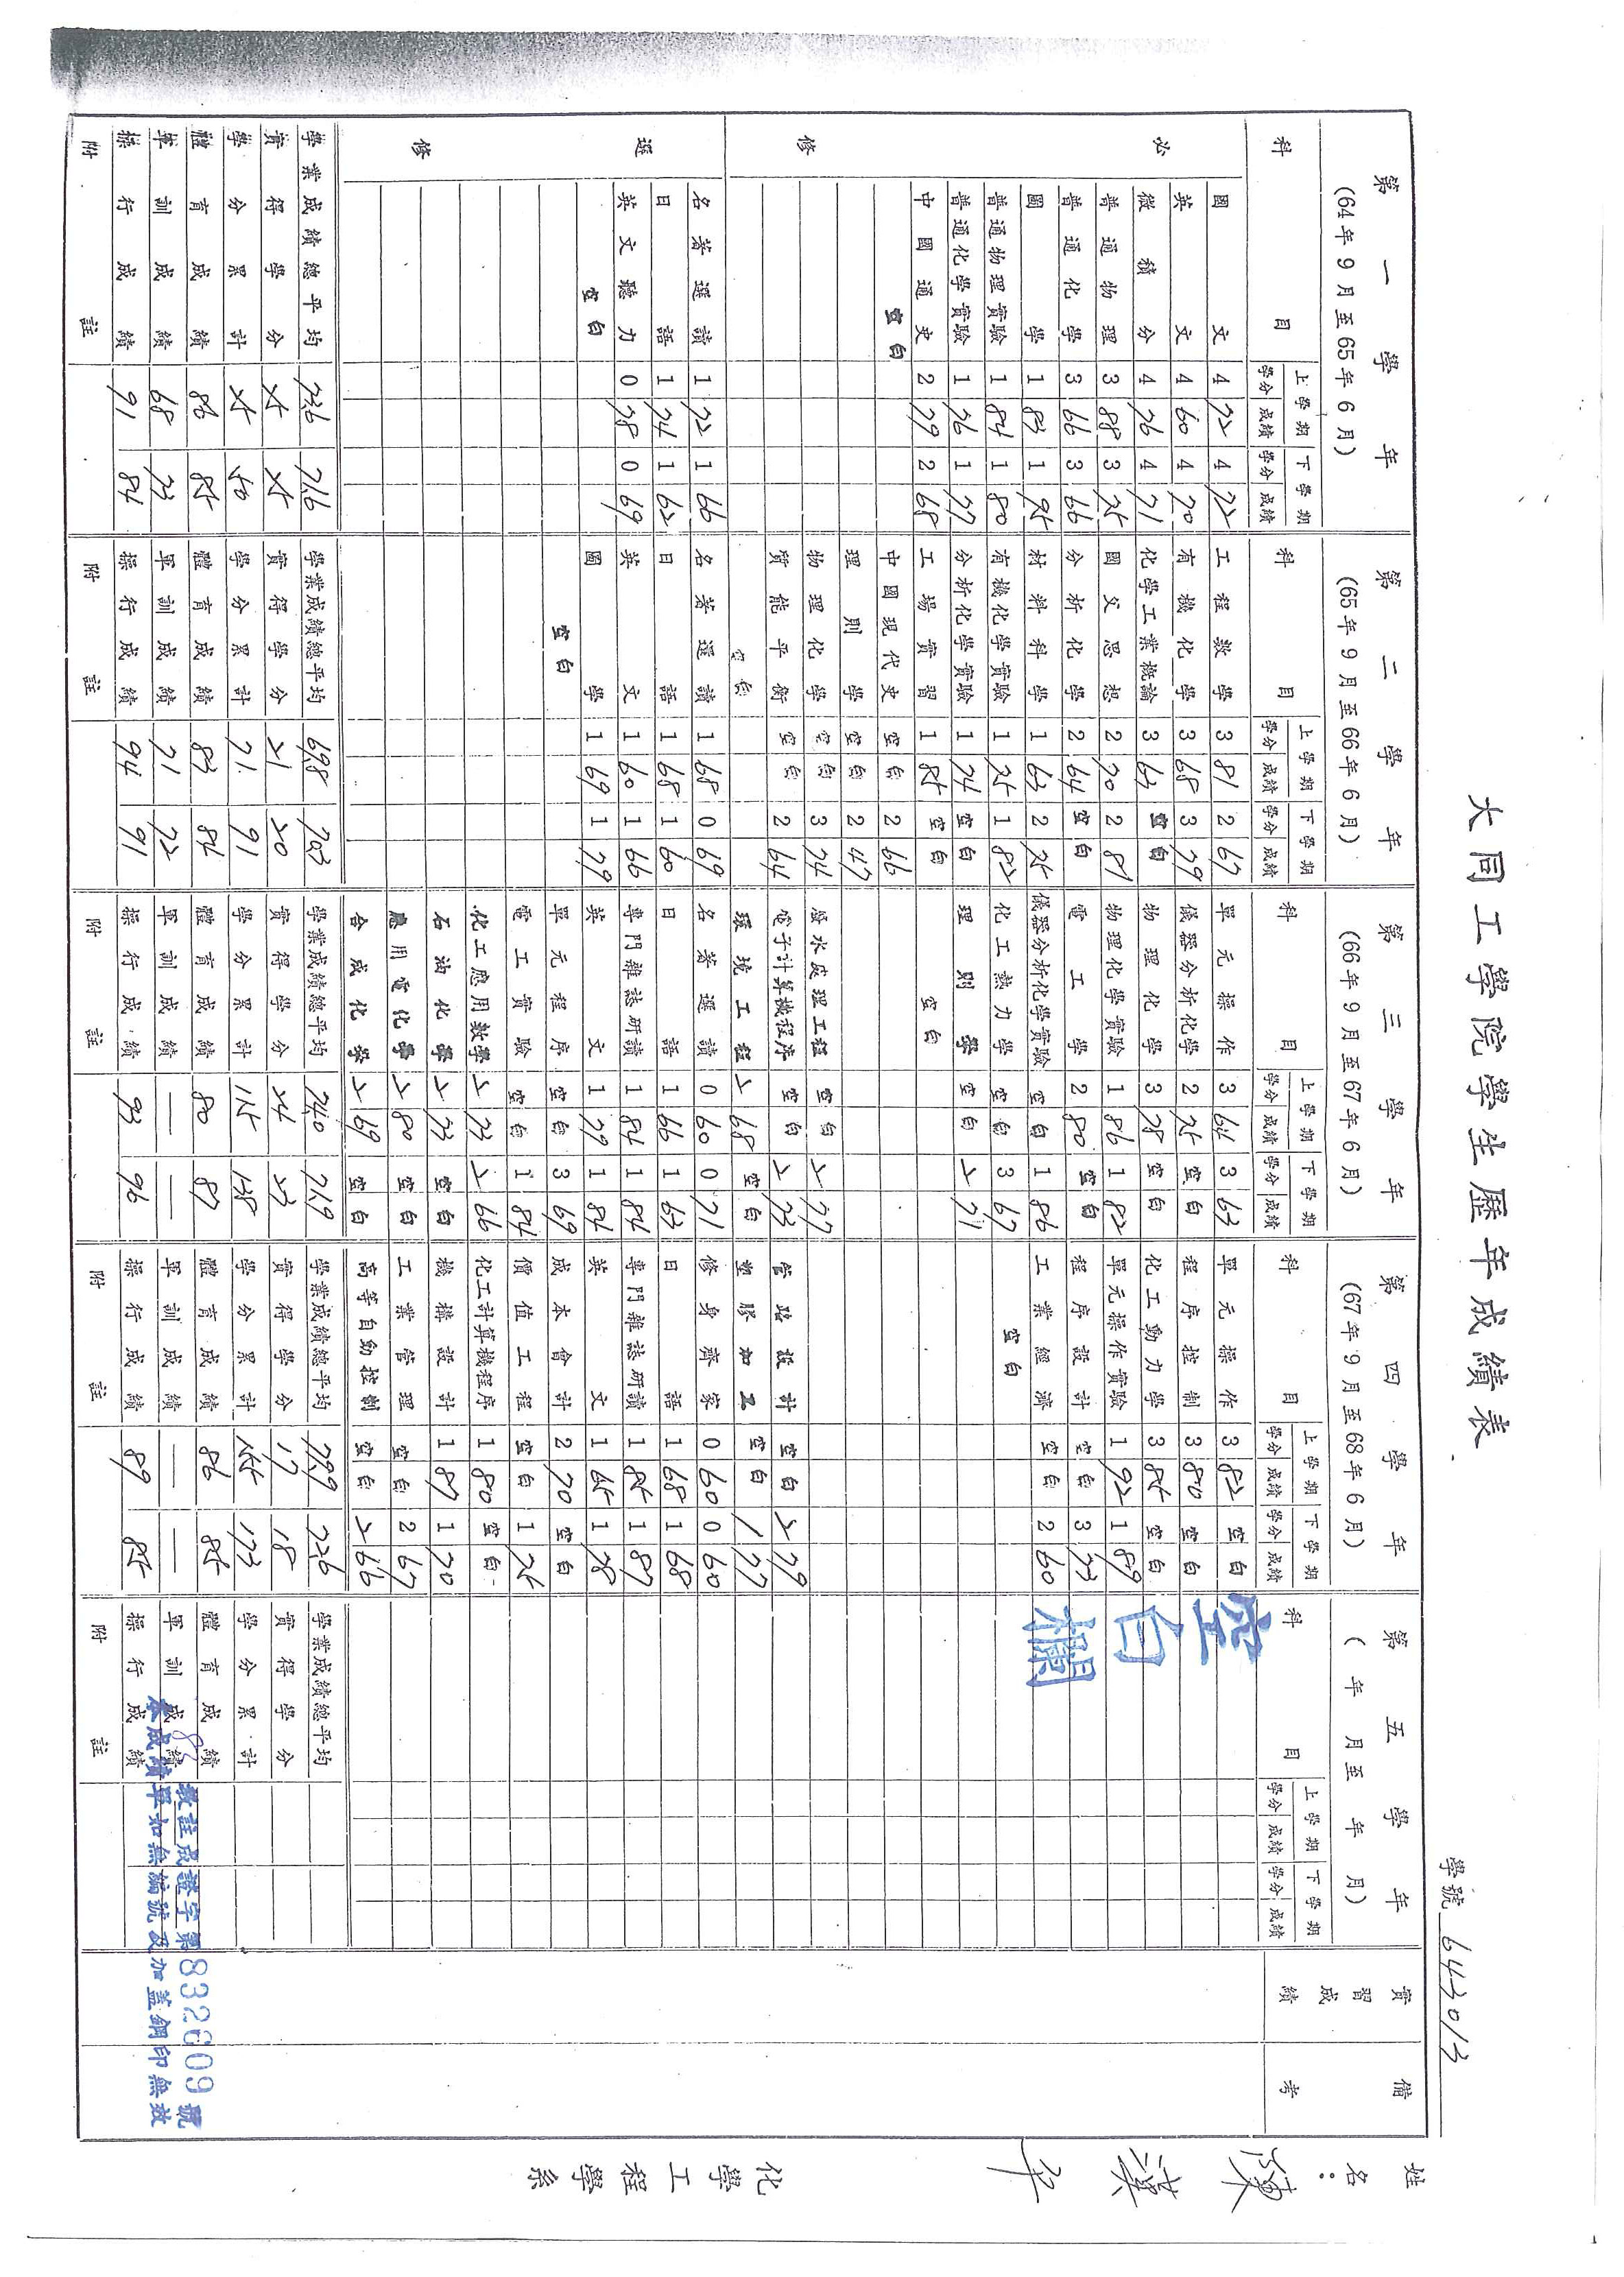 大同工學院學生歷年成績表
學號 643013
姓名：陳漢平
化學工程學系
第一學年
(64年9月至65年6月)
科目 上學期 學分 成績 下學期 學分 成績
必修
國文 4 72 4 72
英文 4 60 4 70
微積分 4 76 4 71
普通物理 3 88 3 75
普通化學 3 66 3 66
圖學 1 83 1 75
普通物理實驗 1 84 1 80
普通化學實驗 1 76 1 77
中國通史 2 79 2 68
空白
選修
名著選讀 1 72 1 66
日語 1 74 1 62
英文聽力 0 78 0 69
空白
學業成績總平均 73.6 71.6
實得學分 25 25
學分累計 25 50
體育成績 86 85
軍訓成績 68 73
操行成績 91 84
附註
第二學年
(65年9月至66年6月)
科目 上學期 學分 成績 下學期 學分 成績
工程數學 3 81 2 67
有機化學 3 68 3 79
化學工業概論 3 63 空白
國父思想 2 70 2 81
分析化學 2 64 空白
材料科學 1 63 2 75
有機化學實驗 1 75 1 82
分析化學實驗 1 74 空白
工場實習 1 85 空白
中國現代史 空白 2 66
理則學 空白 2 47
物理化學 空白 3 74
質能平衡 空白 2 64
空白
名著選讀 1 68 0 69
日語 1 68 1 60
英文 1 60 1 66
圖學 1 69 1 79
空白
學業成績總平均 69.8 70.3
實得學分 21 20
學分累計 71 91
體育成績 83 84
軍訓成績 71 72
操行成績 94 91
附註
第三學年
(66年9月至67年6月)
科目 上學期 學分 成績 下學期 學分 成績
單元操作 3 64 3 63
儀器分析化學 2 75 空白
物理化學 3 78 空白
物理化學實驗 1 86 1 82
電工學 2 80 空白
儀器分析化學實驗 空白 1 86
化工熱力學 空白 3 67
理則學 空白 2 71
空白
廢水處理工程 空白 2 77
電子計算機程序 空白 2 73
環境工程 2 68 空白
名著選讀 0 60 0 71
日語 1 66 1 63
專門雜誌研讀 1 84 1 84
英文 1 79 1 84
單元程序 空白 3 69
電工實驗 空白 1 84
化工應用數學 2 73 2 66
石油化學 2 73 空白
應用電化學 2 80 空白
合成化學 2 69 空白
學業成績總平均 74.0 71.9
實得學分 24 23
學分累計 115 138
體育成績 80 87
軍訓成績 — —
操行成績 93 96
附註
第四學年
(67年9月至68年6月)
科目 上學期 學分 成績 下學期 學分 成績
單元操作 3 82 空白
程序控制 3 80 空白
化工動力學 3 85 空白
單元操作實驗 1 92 1 89
程序設計 空白 3 73
工業經濟 空白 2 60
空白
管路設計 空白 2 79
塑膠加工 空白 1 77
修身齊家 0 60 0 60
日語 1 68 1 68
專門雜誌研讀 1 85 1 87
英文 1 65 1 78
成本會計 2 70 空白
價值工程 空白 1 75
化工計算機程序 1 80 空白
機構設計 1 87 1 70
工業管理 空白 2 67
高等自動控制 空白 2 66
學業成績總平均 79.9 72.6
實得學分 17 18
學分累計 155 173
體育成績 86 85
軍訓成績 — —
操行成績 89 85
附註
第五學年
( 年 月至 年 月)
科目 上學期 學分 成績 下學期 學分 成績
空白欄
學業成績總平均
實得學分
學分累計
體育成績
軍訓成績
操行成績
附註
實習成績
備考
教註成證字第832609號
本成績單如無編號及加蓋鋼印無效